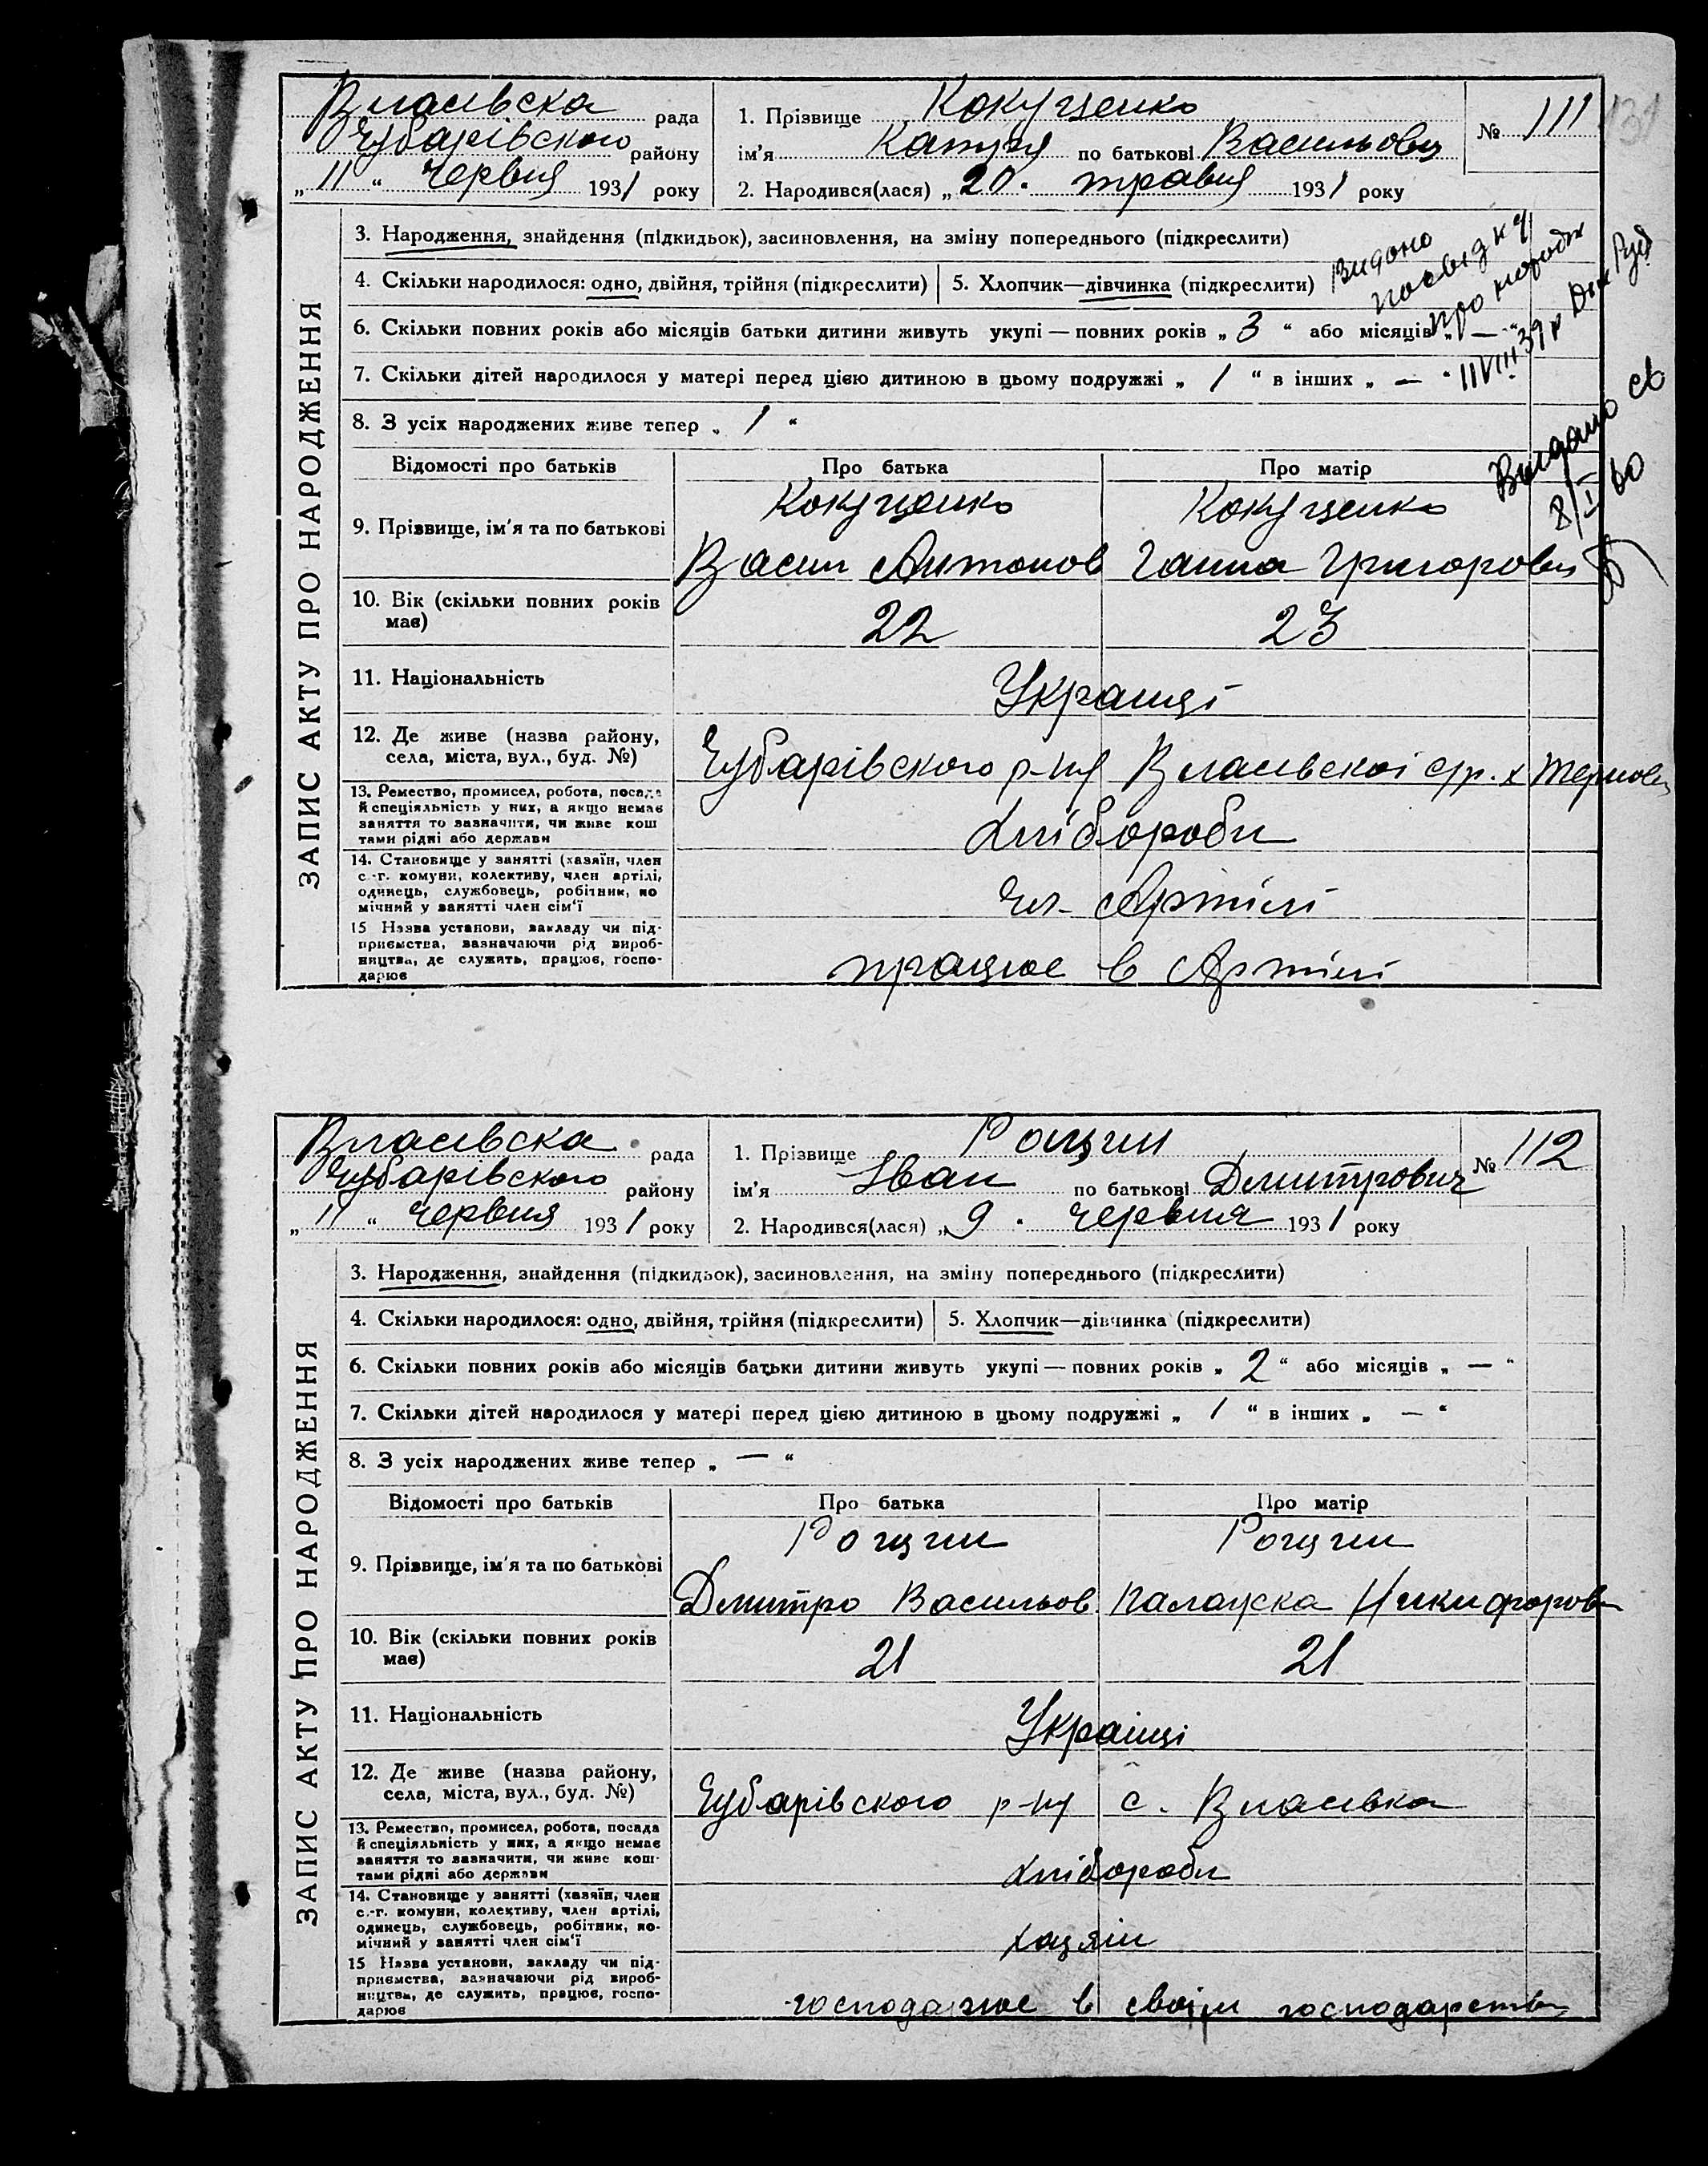 Власівска рада
Чубарівського району
„ 11 “ Червня 1931 року
1. Прізвище Кокущенко
ім'я Катря по батькові Васильовн
2. Народився(лася) „ 20 “ травня 1931 року
№ 111
131
ЗАПИС АКТУ ПРО НАРОДЖЕННЯ
3. Народження, знайдення (підкидьок), засиновлення, на зміну попереднього (підкреслити)
4. Скільки народилося: одно, двійня, трійня (підкреслити)
5. Хлопчик—дівчинка (підкреслити)
Видано
посвідку
про народж
11 VIII 39 р
6. Скільки повних років або місяців батьки дитини живуть укупі — повних років „ 3 “ або місяців „ — “
7. Скільки дітей народилося у матері перед цією дитиною в цьому подружжі „ 1 “ в інших „ — “
8. З усіх народжених живе тепер „ 1 “
Видано св
8/I 60
Відомості про батьків Про батька Про матір
9. Прізвище, ім'я та по батькові
Кокущенко Кокущенко
Васил Антонов Ганна Григоровн
10. Вік (скільки повних років
має)
22 23
11. Національність
Українці
12. Де живе (назва району,
села, міста, вул., буд. №)
Чубарівського р-ну Власівскоі с/р. х
13. Ремество, промисел, робота, посада
й спеціяльність у них, а якщо немає
заняття то зазначити, чи живе кош
тами рідні або держави
Хлібороби
14. Становище у занятті (хазяїн, член
с.-г. комуни, колективу, член артілі,
одинець, службовець, робітник, по
мічний у занятті член сім'ї
Чл. Артілі
15 Назва установи, закладу чи під-
приємства, зазначаючи рід вироб-
ництва, де служить, працює, госпо-
дарює
працює в Артілі
Власівска рада
Чубарівського району
„ 11 “ Червня 1931 року
1. Прізвище Рощин
ім'я Іван по батькові Дмитрович
2. Народився(лася) „ 9 “ Червня 1931 року
№ 112
ЗАПИС АКТУ ПРО НАРОДЖЕННЯ
3. Народження, знайдення (підкидьок), засиновлення, на зміну попереднього (підкреслити)
4. Скільки народилося: одно, двійня, трійня (підкреслити)
5. Хлопчик—дівчинка (підкреслити)
6. Скільки повних років або місяців батьки дитини живуть укупі — повних років „ 2 “ або місяців „ — “
7. Скільки дітей народилося у матері перед цією дитиною в цьому подружжі „ 1 “ в інших „ — “
8. З усіх народжених живе тепер „ — “
Відомості про батьків Про батька Про матір
9. Прізвище, ім'я та по батькові
Рощин Рощин
Дмитро Васильов. Палажка Никифоровн
10. Вік (скільки повних років
має)
21 21
11. Національність
Українці
12. Де живе (назва району,
села, міста, вул., буд. №)
Чубарівського р-ну с. Власівка
13. Ремество, промисел, робота, посада
й спеціяльність у них, а якщо немає
заняття то зазначити, чи живе кош-
тами рідні або держави
хлібороби
14. Становище у занятті (хазяїн, член
с.-г. комуни, колективу, член артілі,
одинець, службовець, робітник, по-
мічний у занятті член сім'ї
хазяїн
15 Назва установи, закладу чи під-
приємства, зазначаючи рід вироб-
ництва, де служить, працює, госпо-
дарює
господарює в своїм господарстві